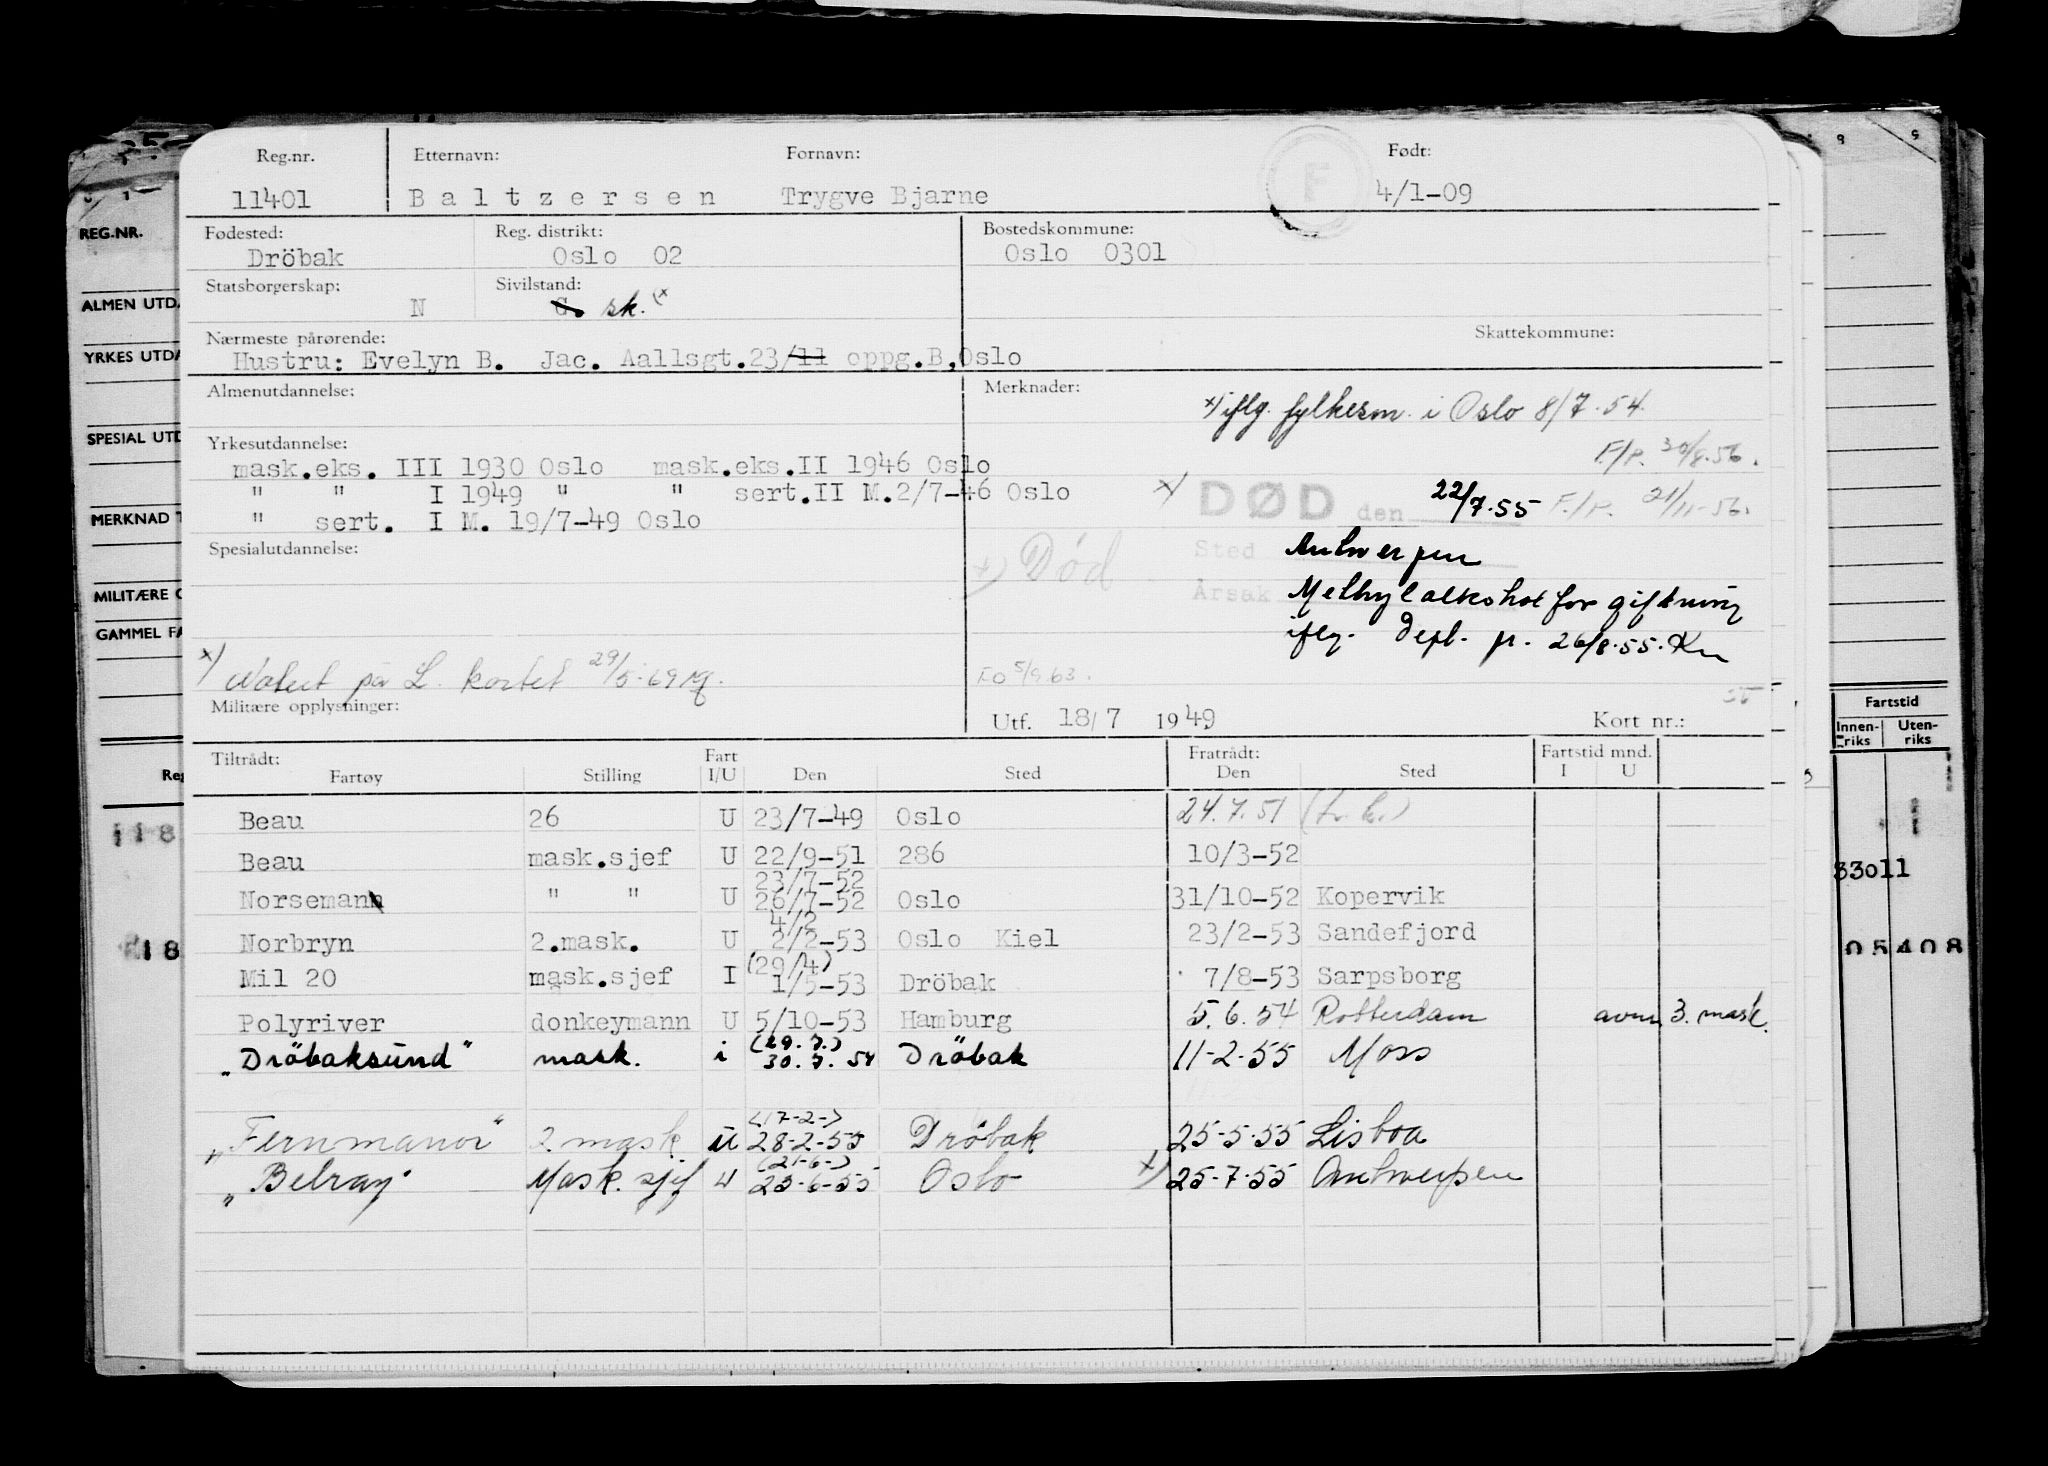 Reg.nr. Etternavn: Fornavn: Født:
11401 Baltzersen Trygve Bjarne F 4/1-09
Fødested: Reg. distrikt: Bostedskommune:
Dröbak Oslo 02 Oslo 0301
Statsborgerskap: Sivilstand:
N G. sk. (x
Nærmeste pårørende: Skattekommune:
Hustru: Evelyn B. Jac. Aallsgt.23/11 oppg.B,Oslo
Almenutdannelse: Merknader:
x) iflg. fylkesm. i Oslo 8/7-54.
Yrkesutdannelse:
F/P. 30/8-56.
mask.eks. III 1930 Oslo mask.eks.II 1946 Oslo
" " I 1949 " " sert.II M.2/7-46 Oslo
x) DØD den 22/7-55 F./P. 21/11-56.
" sert. I M. 19/7-49 Oslo
Spesialutdannelse:
x) Død
Sted Antwerpen
Årsak Methylalkohol forgiftning
iflg. Depl. pr. 26/8-55. Kn
x) Notert på L. kortet 29/5-69
FO 5/9 63.
Militære opplysninger:
Utf. 18/7 1949 Kort nr.:
Tiltrådt: Fart Fratrådt: Fartstid mnd.
Fartøy Stilling I/U Den Sted Den Sted I U
Beau 26 U 23/7-49 Oslo 24.7.51
Beau mask.sjef U 22/9-51 286 10/3-52
23/7-52
Norsemann " " U 26/7-52 Oslo 31/10-52 Kopervik
4/2
Norbryn 2.mask. U 2/2-53 Oslo Kiel 23/2-53 Sandefjord
(29/4)
Mil 20 mask.sjef I 1/5-53 Dröbak 7/8-53 Sarpsborg
Polyriver donkeymann U 5/10-53 Hamburg 5.6.54 Rotterdam avm. 3. mask.
(29.7.)
"Dröbaksund" mask. i 30.7.54 Dröbak 11-2-55 Moss
(17-2-)
"Fernmanor" 2 mask. u 28-2-55 Drøbak 25-5-55 Lisboa
(21-6-)
"Belray" Mask.sjef u 25-6-55 Oslo x) 25-7-55 Antwerpen
REG.NR.
ALMEN UTD
YRKES UTDA
SPESIAL UTD
MERKNAD
MILITÆRE
GAMMEL FA
Reg
118
18
Fartstid
Innen-riks Uten-riks
33011
05408